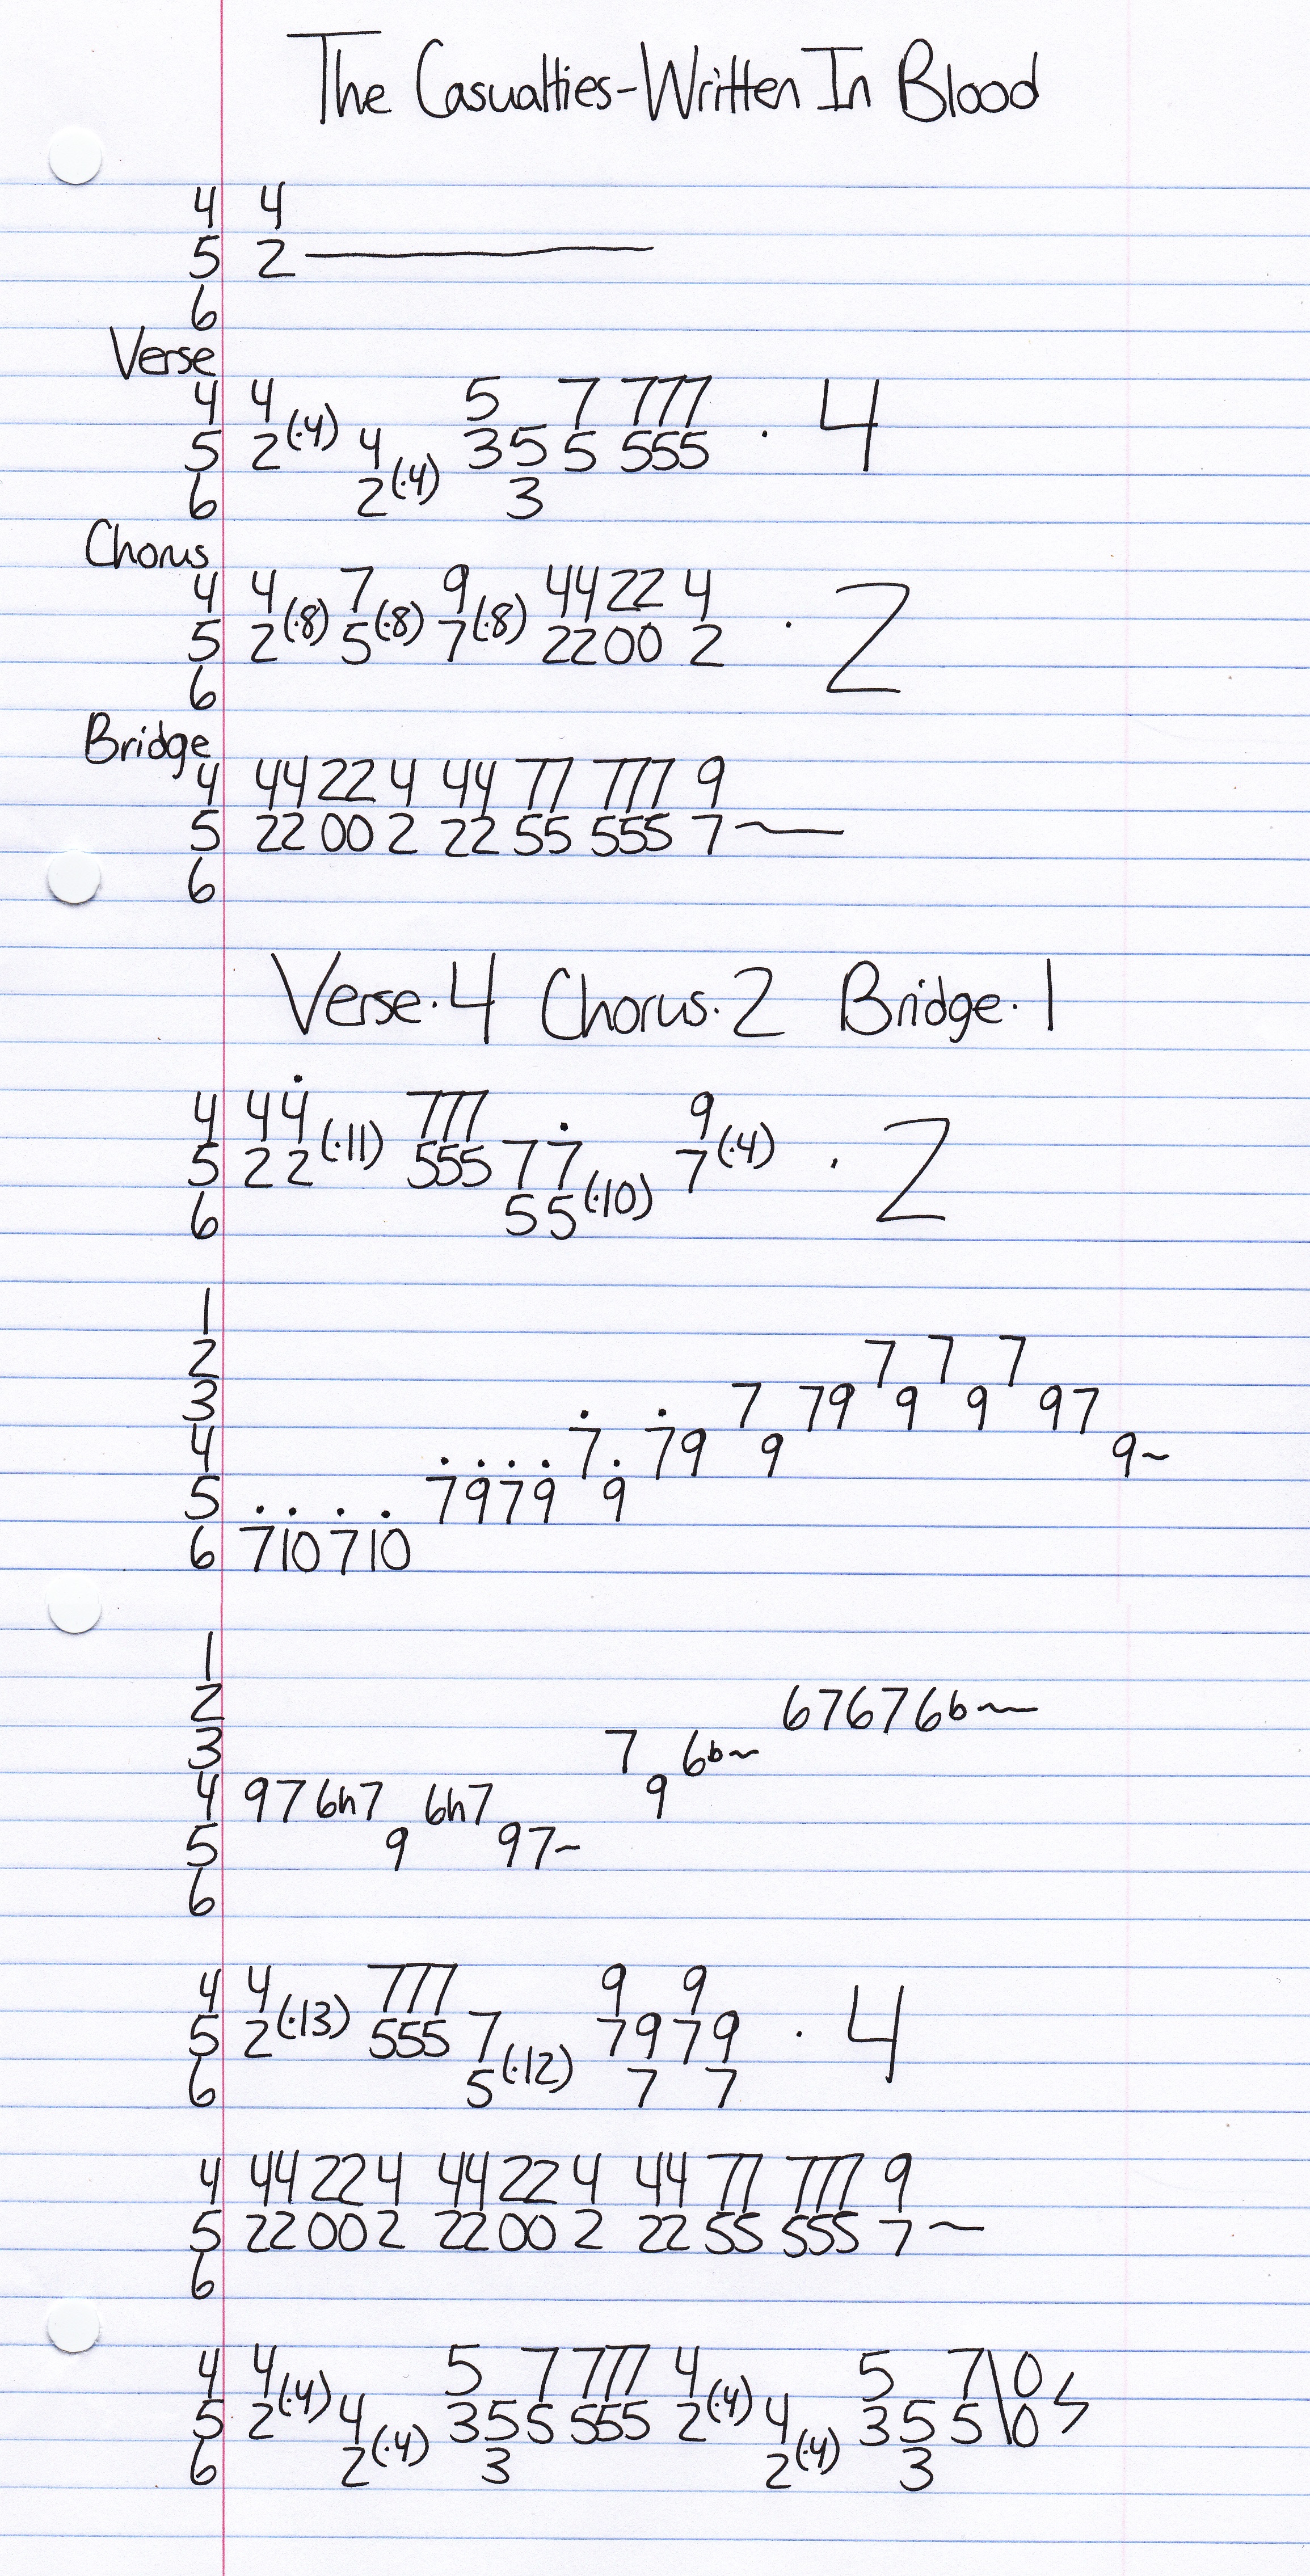 The Casualties-Written In Blood
4 4
5 2
6
Verse
4 4 5 7 777
5 2(·4) 4 3 5 5 555 · 4
6 2(·4) 3
Chorus
4 4 7 9 44 22 4
5 2(·8) 5(·8) 7(·8) 22 00 2 · 2
6
Bridge
4 44 22 4 44 77 777 9
5 22 00 2 22 55 555 7~
6
Verse·4 Chorus·2 Bridge·1
4 4 4 777 9
5 2 2(·11) 555 7 7 7(·4) · 2
6 5 5(·10)
1
2 7 7 7
3 7 7 9 9 9 9 7
4 7 7 9 9 9~
5 7 9 7 9 9
6 7 10 7 10
1
2 6 7 6 7 6b~
3 7 6b~
4 9 7 6h7 6h7 9
5 9 9 7~
6
4 4 777 9 9
5 2(·13) 555 7 7 9 7 9 · 4
6 5(·12) 7 7
4 44 22 4 44 22 4 44 77 777 9
5 22 00 2 22 00 2 22 55 555 7~
6
4 4 5 7 777 4 5 7\0
5 2(·4) 4 3 5 5 555 2(·4) 4 3 5 5\0
6 2(·4) 3 2(·4) 3